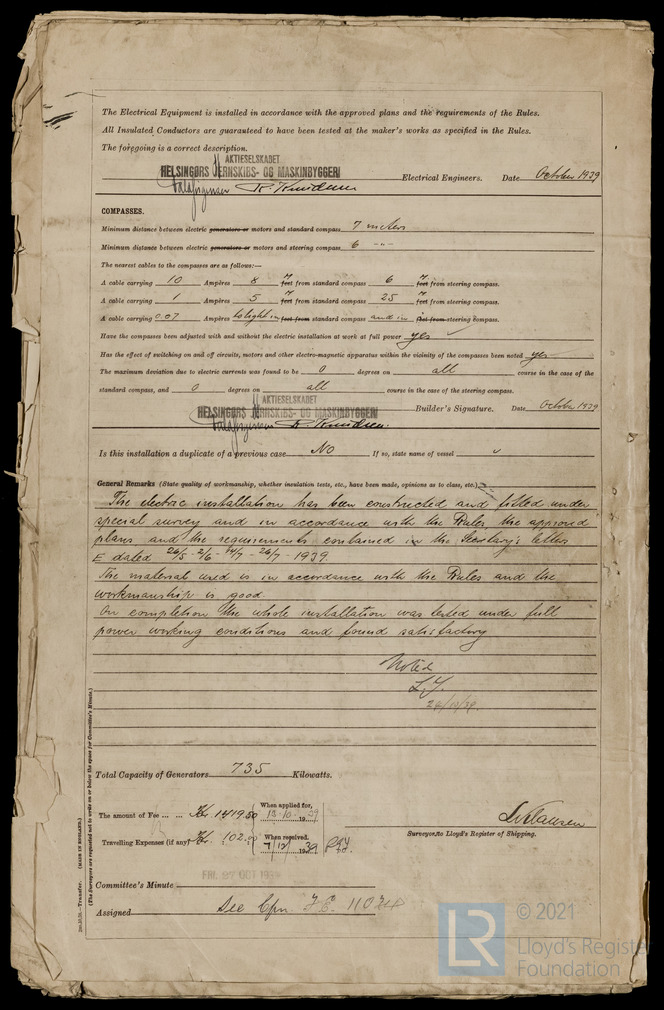 The Electrical Equipment is installed in accordance with the approved plans and the requirements of the Rules.
All Insulated Conductors are guaranteed to have been tested at the maker's works as specified in the Rules.
The foregoing is a correct description.
AKTIESELSKABET
HELSINGØRS JERNSKIBS- OG MASKINBYGGERI
R. Knudsen Electrical Engineers. Date October 1939
COMPASSES.
Minimum distance between electric generators or motors and standard compass 7 meters
Minimum distance between electric generators or motors and steering compass 6 -"-
The nearest cables to the compasses are as follows:—
A cable carrying 10 Ampères 8 m feet from standard compass 6 m feet from steering compass.
A cable carrying 1 Ampères 5 m feet from standard compass 25 m feet from steering compass.
A cable carrying 0.07 Ampères to light in feet from standard compass and in feet from steering compass.
Have the compasses been adjusted with and without the electric installation at work at full power yes
Has the effect of switching on and off circuits, motors and other electro-magnetic apparatus within the vicinity of the compasses been noted yes
The maximum deviation due to electric currents was found to be 0 degrees on all course in the case of the
standard compass, and 0 degrees on all course in the case of the steering compass.
AKTIESELSKABET
HELSINGØRS JERNSKIBS- OG MASKINBYGGERI
R. Knudsen. Builder's Signature. Date October 1939
Is this installation a duplicate of a previous case No If no, state name of vessel
General Remarks (State quality of workmanship, whether insulation tests, etc., have been made, opinions as to class, etc.)
The electric installation has been constructed and fitted under
special survey and in accordance with the Rules the approved
plans and the requirements contained in the Secretary's letters
E dated 26/5 - 2/6 - 14/7 - 26/7 - 1939.
The material used is in accordance with the Rules and the
workmanship is good
On completion the whole installation was tested under full
power working conditions and found satisfactory
Noted
26/10/39.
Total Capacity of Generators 735 Kilowatts.
The amount of Fee ... ... Kr. 1419.50 When applied for, 13.10.1939
Travelling Expenses (if any) Kr. 102.00 When received, 7/12 1939
Surveyor to Lloyd's Register of Shipping.
FRI. 27 OCT 1939
Committee's Minute
Assigned See Cpn F.E. 11074
2m.10.38.—Transfer. (MADE IN ENGLAND.)
(The Surveyors are requested not to write on or below the space for Committee's Minute.)
LR
© 2021
Lloyd's Register
Foundation